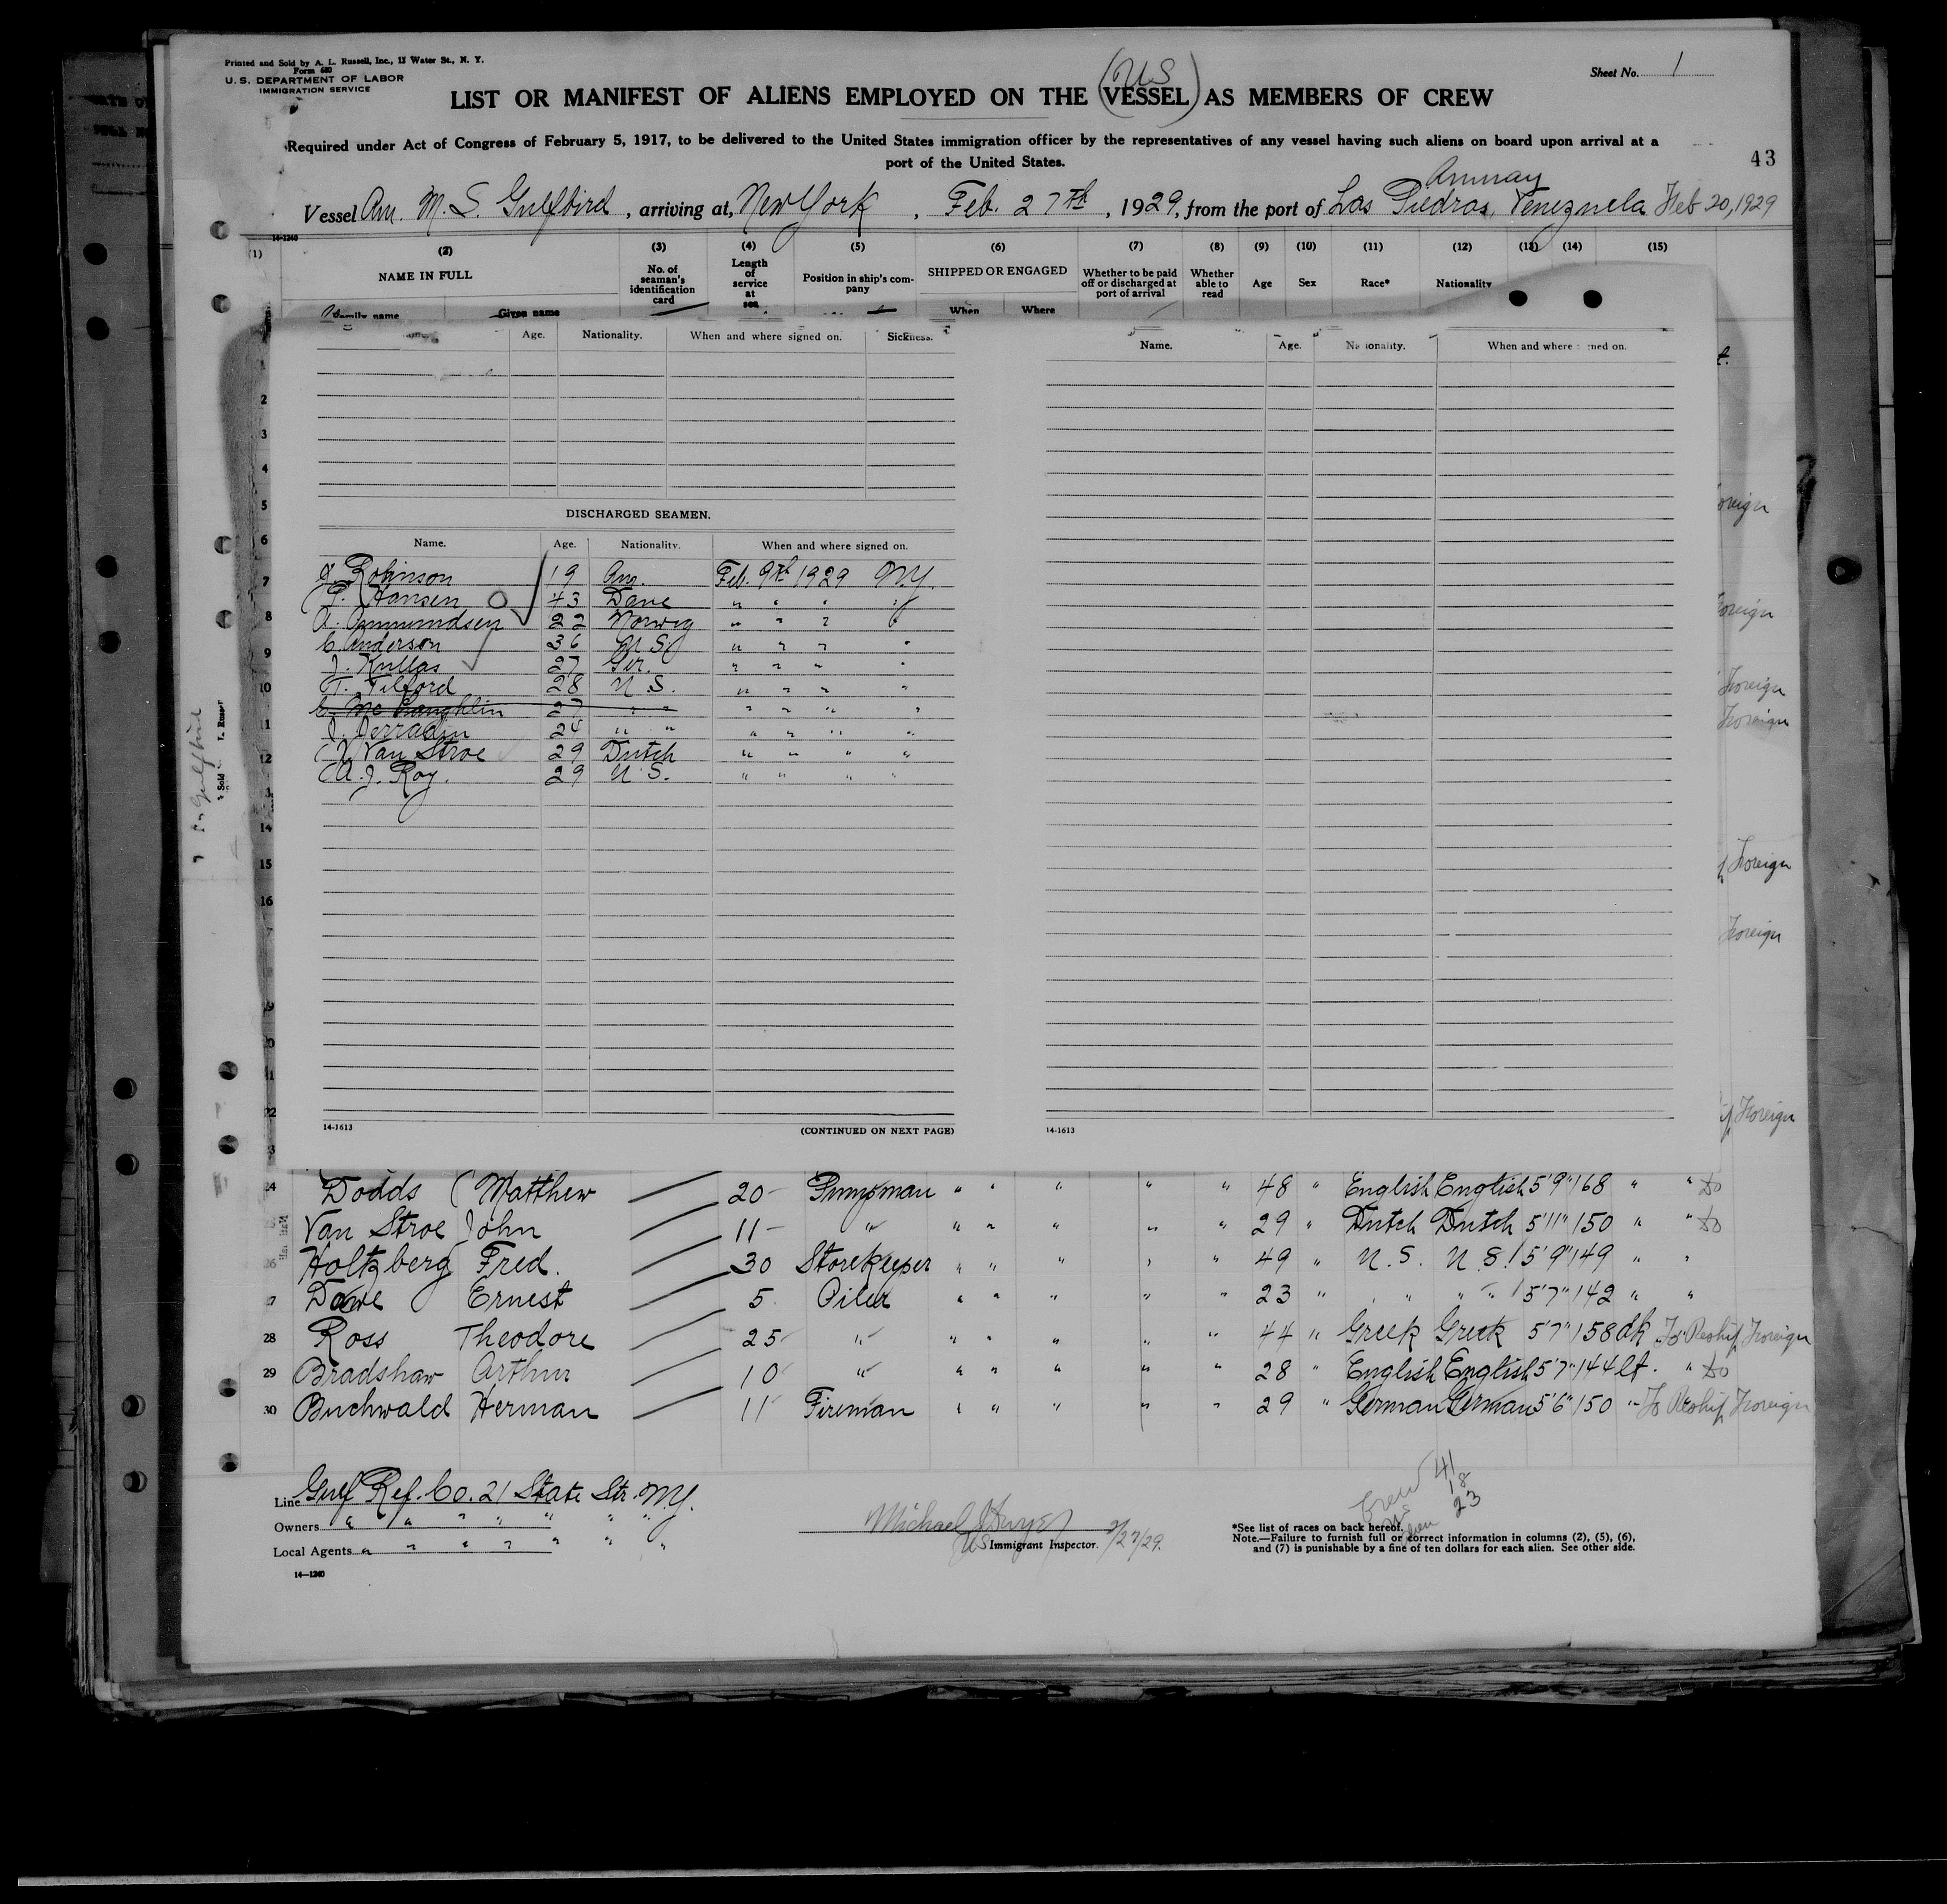 Printed and Sold by A. L. Russell, Inc., 13 Water St., N. Y.
Form 680
U. S. DEPARTMENT OF LABOR
IMMIGRATION SERVICE
Sheet No. 1
US
LIST OR MANIFEST OF ALIENS EMPLOYED ON THE (VESSEL) AS MEMBERS OF CREW
Required under Act of Congress of February 5, 1917, to be delivered to the United States immigration officer by the representatives of any vessel having such aliens on board upon arrival at a
port of the United States.
43
Amuay
Vessel Am. M. S. Gulfbird, arriving at, New York, Feb. 27th, 1929, from the port of Las Piedras, Venezuela Feb 20, 1929
14-1240
(1) (2) (3) (4) (5) (6) (7) (8) (9) (10) (11) (12) (13) (14) (15)
NAME IN FULL No. of seaman's identification card Length of service at sea Position in ship's company SHIPPED OR ENGAGED Whether to be paid off or discharged at port of arrival Whether able to read Age Sex Race* Nationality
Family name Given name When Where
Age. Nationality. When and where signed on. Sickness.
Name. Age. Nationality. When and where signed on.
DISCHARGED SEAMEN.
Name. Age. Nationality. When and where signed on.
J. Robinson 19 Am. Feb. 9th 1929 N.Y.
P. Hansen 43 Dane " " " "
A. Ammundsen 22 Norweg " " " "
C. Anderson 36 U.S. " " " "
J. Kullas 27 Ger. " " " "
T. Telford 28 U.S. " " " "
C. McLaughlin 27 " " " " " "
J. 24 " " " " " "
J. Van Stroe 29 Dutch " " " "
A. J. Roy. 29 U.S. " " " "
14-1613
(CONTINUED ON NEXT PAGE)
14-1613
Foreign
Foreign
Foreign
Foreign
Foreign
Foreign
Foreign
24 Dodds Matthew 20 Pumpman " " " " " 48 " English English 5'9" 168 " " do
Van Stroe John 11 " " " " " " 29 " Dutch Dutch 5'11" 150 " " do
26 Holtzberg Fred. 30 Storekeeper " " " " " 49 " U.S. U.S. 5'9" 149 " "
27 Dowe Ernest 5 Oiler " " " " " 23 " " " 5'7" 142 " "
28 Ross Theodore 25 " " " " " " 44 " Greek Greek 5'7" 158 dk To Reship Foreign
29 Bradshaw Arthur 10 " " " " " " 28 " English English 5'7" 144 lt. " do
30 Buchwald Herman 11 Fireman " " " " " 29 " German German 5'6" 150 " To Reship Foreign
Line Gulf Ref. Co. 21 State Str. N.Y.
Owners " " " " " " "
Local Agents " " " " " " "
14—1240
Michael J Dwyer
US Immigrant Inspector. 2/27/29.
Crew 41
US 18
Alien 23
*See list of races on back hereof.
Note.—Failure to furnish full or correct information in columns (2), (5), (6),
and (7) is punishable by a fine of ten dollars for each alien. See other side.